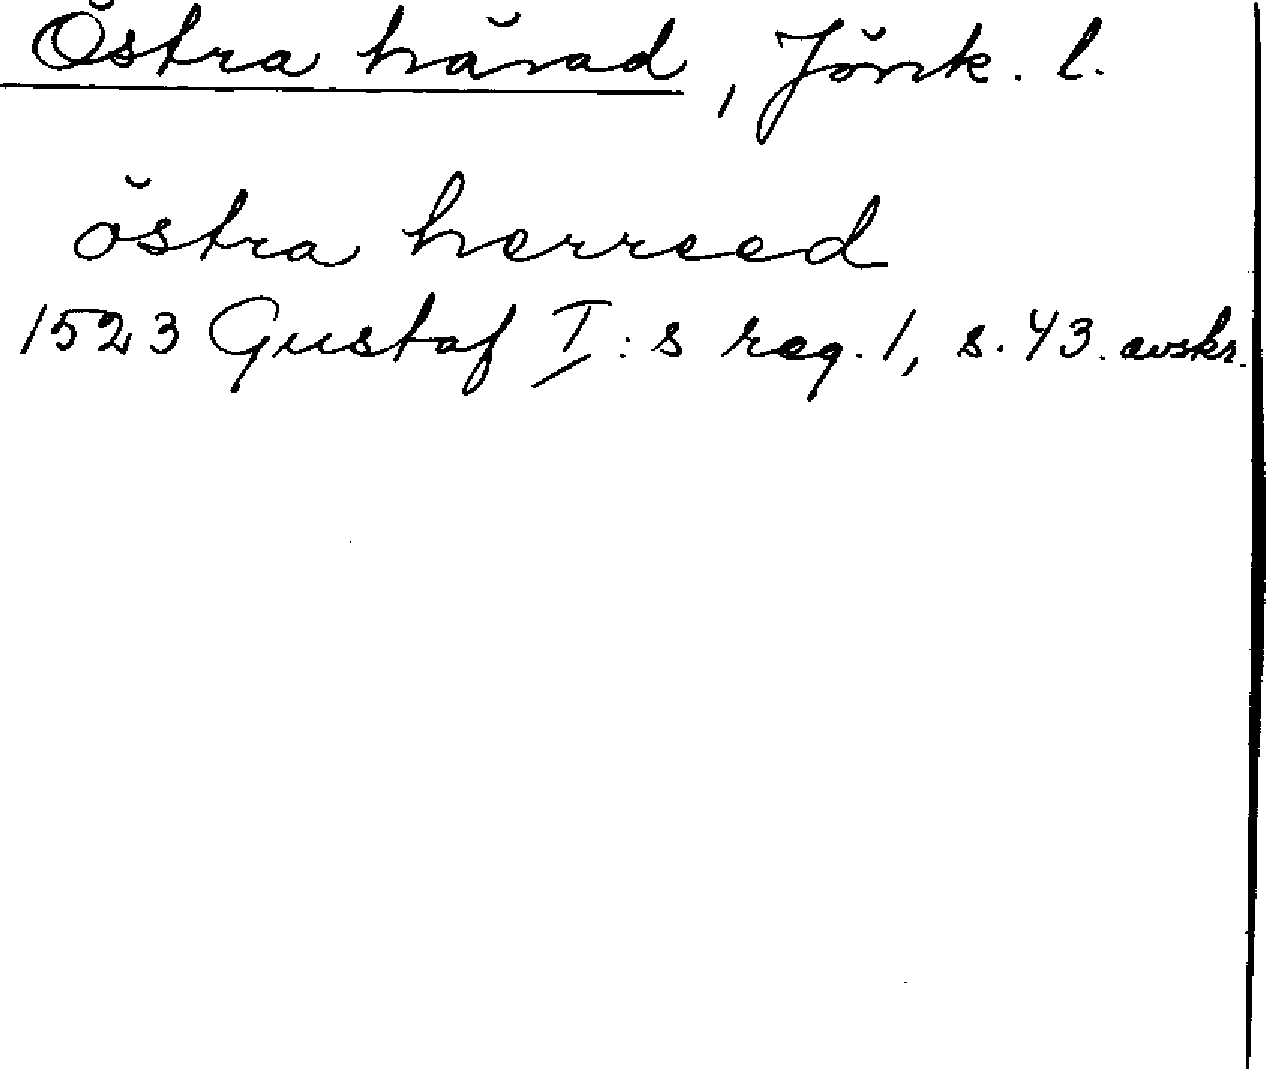 Östra härad, Jönk. l.
östra herreed
1523 Gustaf I:s reg. 1, s. 43. avskr.